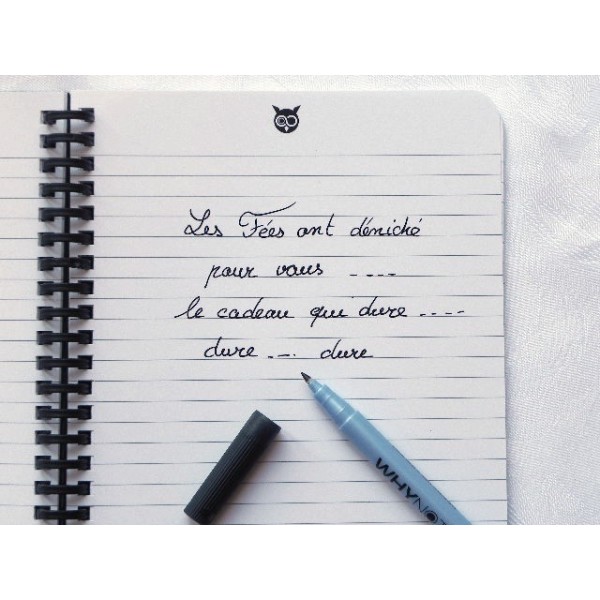 Les Fées ont déniché
pour vous ----
le cadeau qui dure ----
dure --- dure
WHYNOT